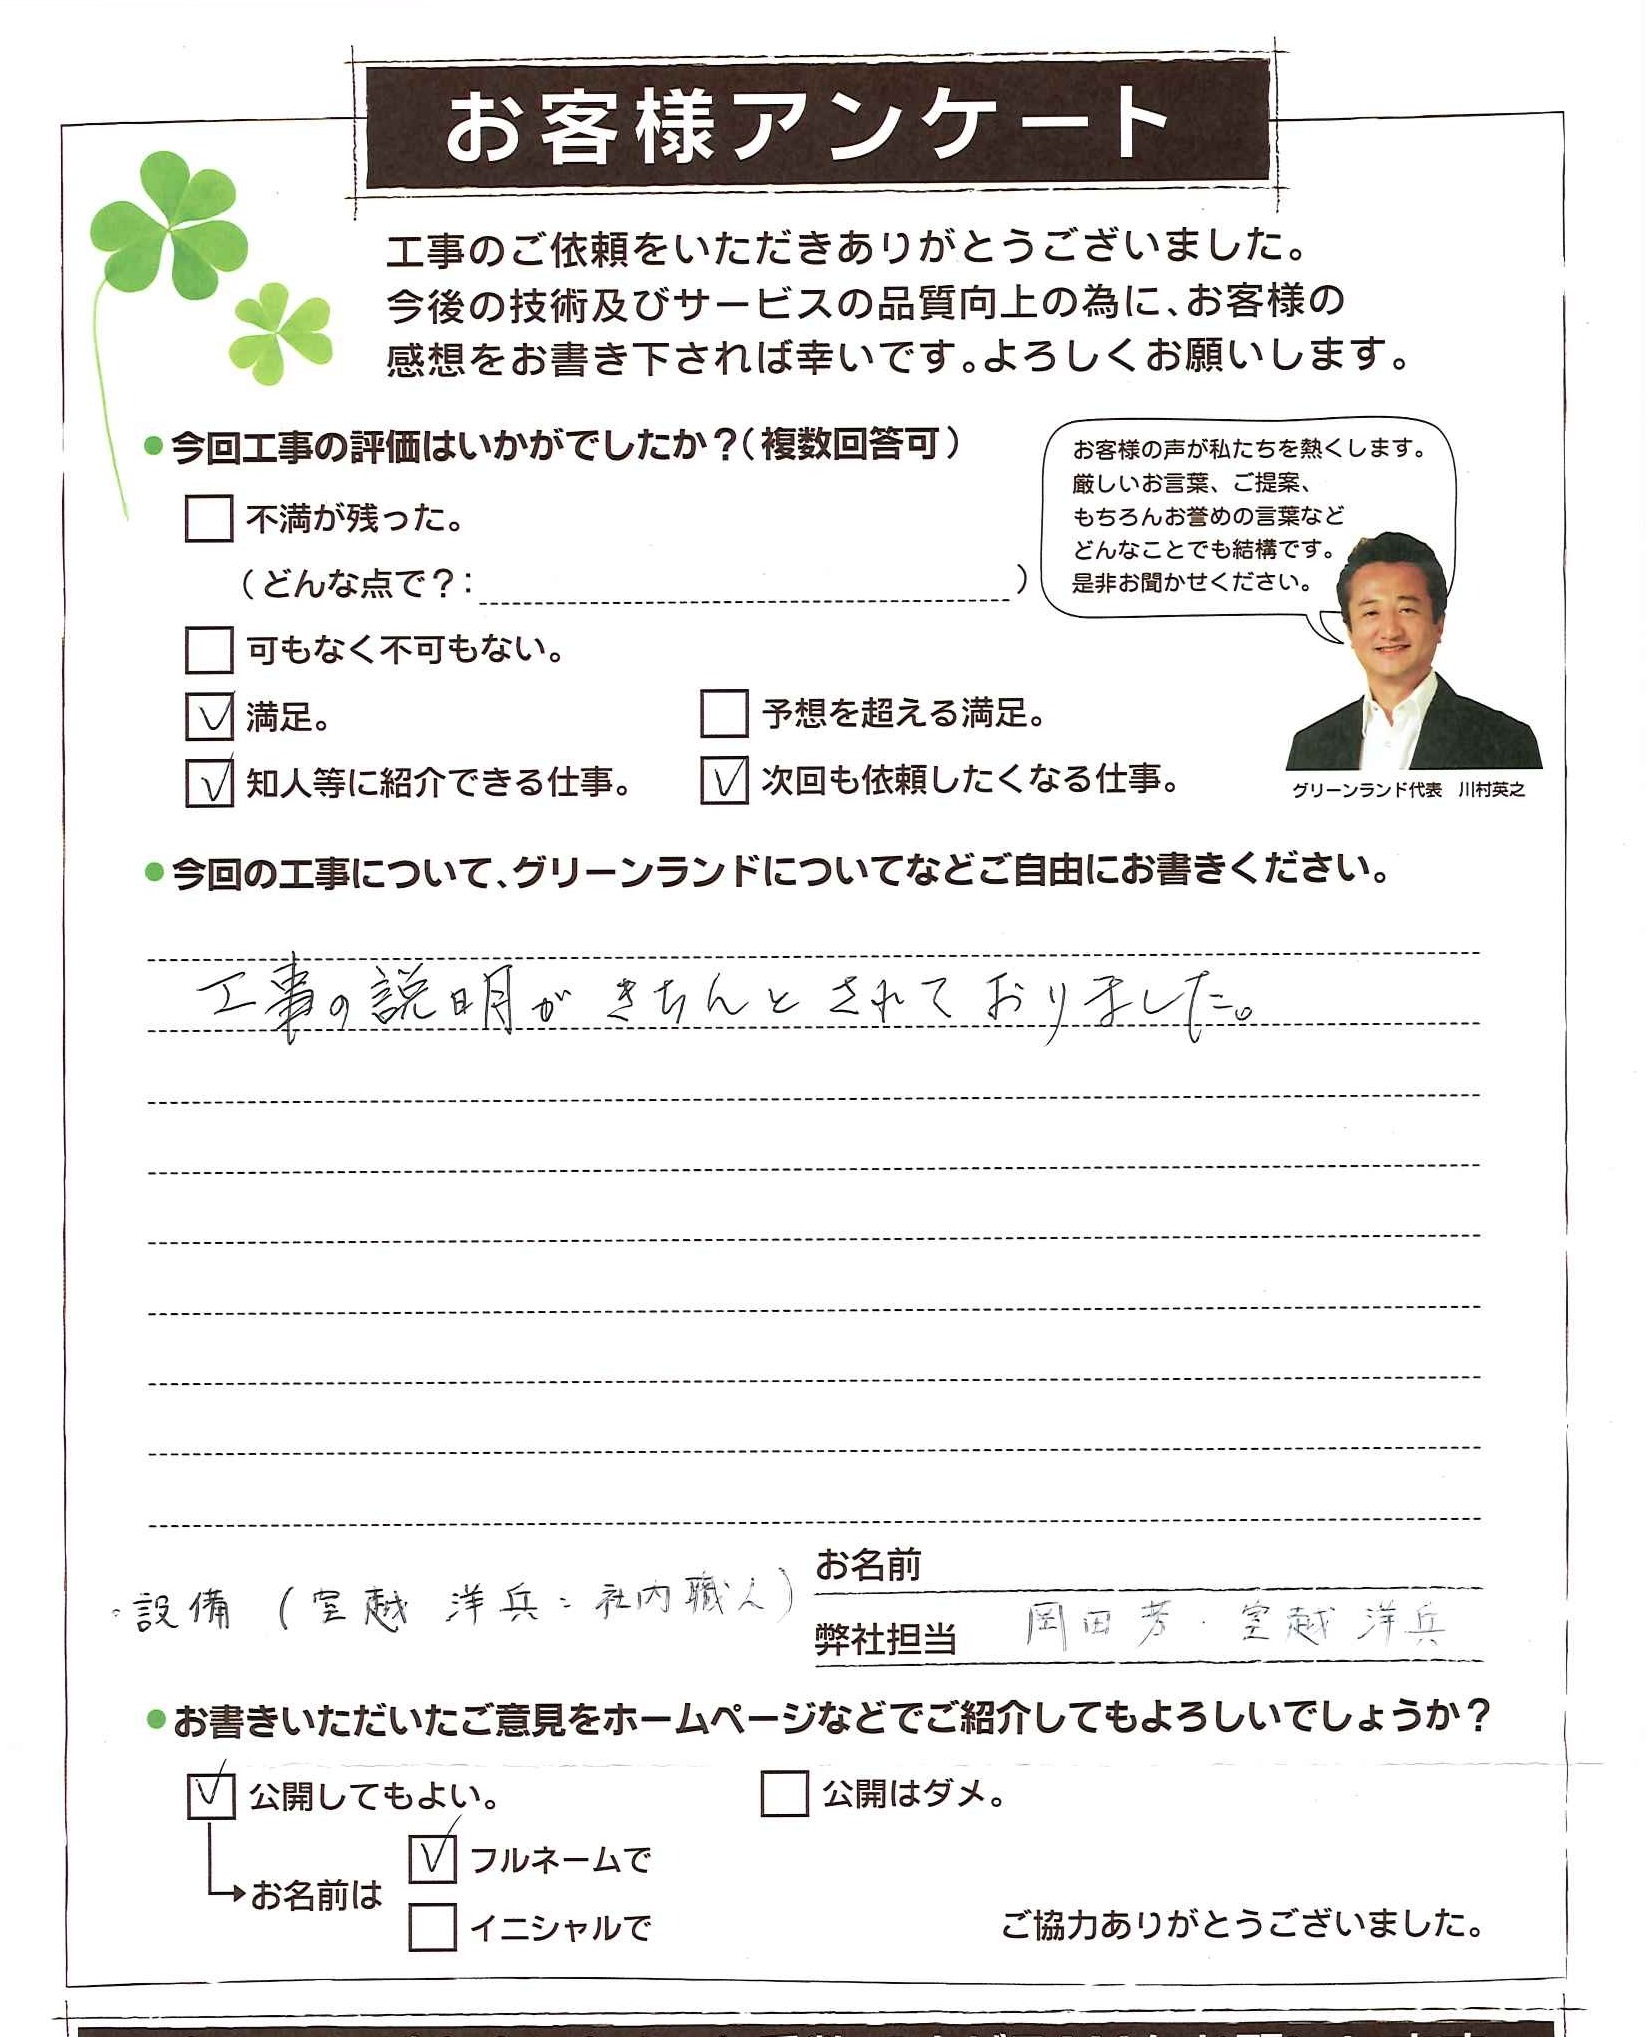 お客様アンケート
工事のご依頼をいただきありがとうございました。
今後の技術及びサービスの品質向上の為に、お客様の
感想をお書き下されば幸いです。よろしくお願いします。
●今回工事の評価はいかがでしたか?(複数回答可)
お客様の声が私たちを熱くします。
厳しいお言葉、ご提案、
もちろんお誉めの言葉など
どんなことでも結構です。
是非お聞かせください。
不満が残った。
(どんな点で?: )
可もなく不可もない。
✓ 満足。
予想を超える満足。
✓ 知人等に紹介できる仕事。
✓ 次回も依頼したくなる仕事。
グリーンランド代表 川村英之
●今回の工事について、グリーンランドについてなどご自由にお書きください。
工事の説明がきちんとされておりました。
お名前
・設備(室越 洋兵:社内職人)
弊社担当 岡田芳・室越洋兵
●お書きいただいたご意見をホームページなどでご紹介してもよろしいでしょうか?
✓ 公開してもよい。
公開はダメ。
✓ フルネームで
お名前は
イニシャルで
ご協力ありがとうございました。